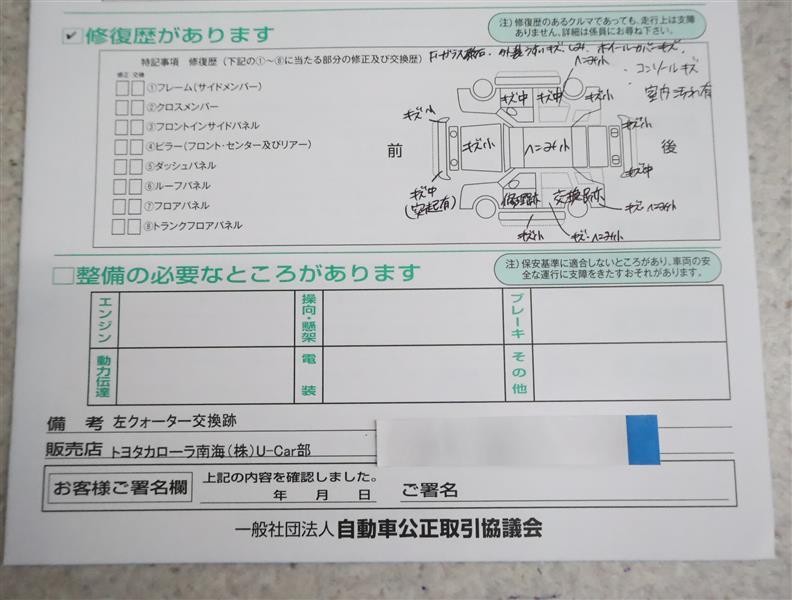 ✓ 修復歴があります
注）修復歴のあるクルマであっても、走行上は支障
ありません。詳細は係員にお尋ね下さい。
特記事項 修復歴（下記の①～⑧に当たる部分の修正及び交換歴）
外装うすいキズ、しみ、ホイールカバーキズ、
ヘコミ小
コンソールキズ
室内汚れ有
修正 交換
①フレーム（サイドメンバー）
②クロスメンバー
③フロントインサイドパネル
④ピラー（フロント・センター及びリアー）
⑤ダッシュパネル
⑥ルーフパネル
⑦フロアパネル
⑧トランクフロアパネル
キズ中 キズ中 キズ小
キズ小 キズ小
前 キズ小 ヘコミ小 後
キズ中 キズ中
修理跡 交換跡
キズ・ヘコミ小
キズ小 キズ・ヘコミ小
整備の必要なところがあります
注）保安基準に適合しないところがあり、車両の安
全な運行に支障をきたすおそれがあります。
エンジン 操向・懸架 ブレーキ
動力伝達 電装 その他
備考 左クォーター交換跡
販売店 トヨタカローラ南海（株）U-Car部
お客様ご署名欄 上記の内容を確認しました。
年 月 日 ご署名
一般社団法人 自動車公正取引協議会